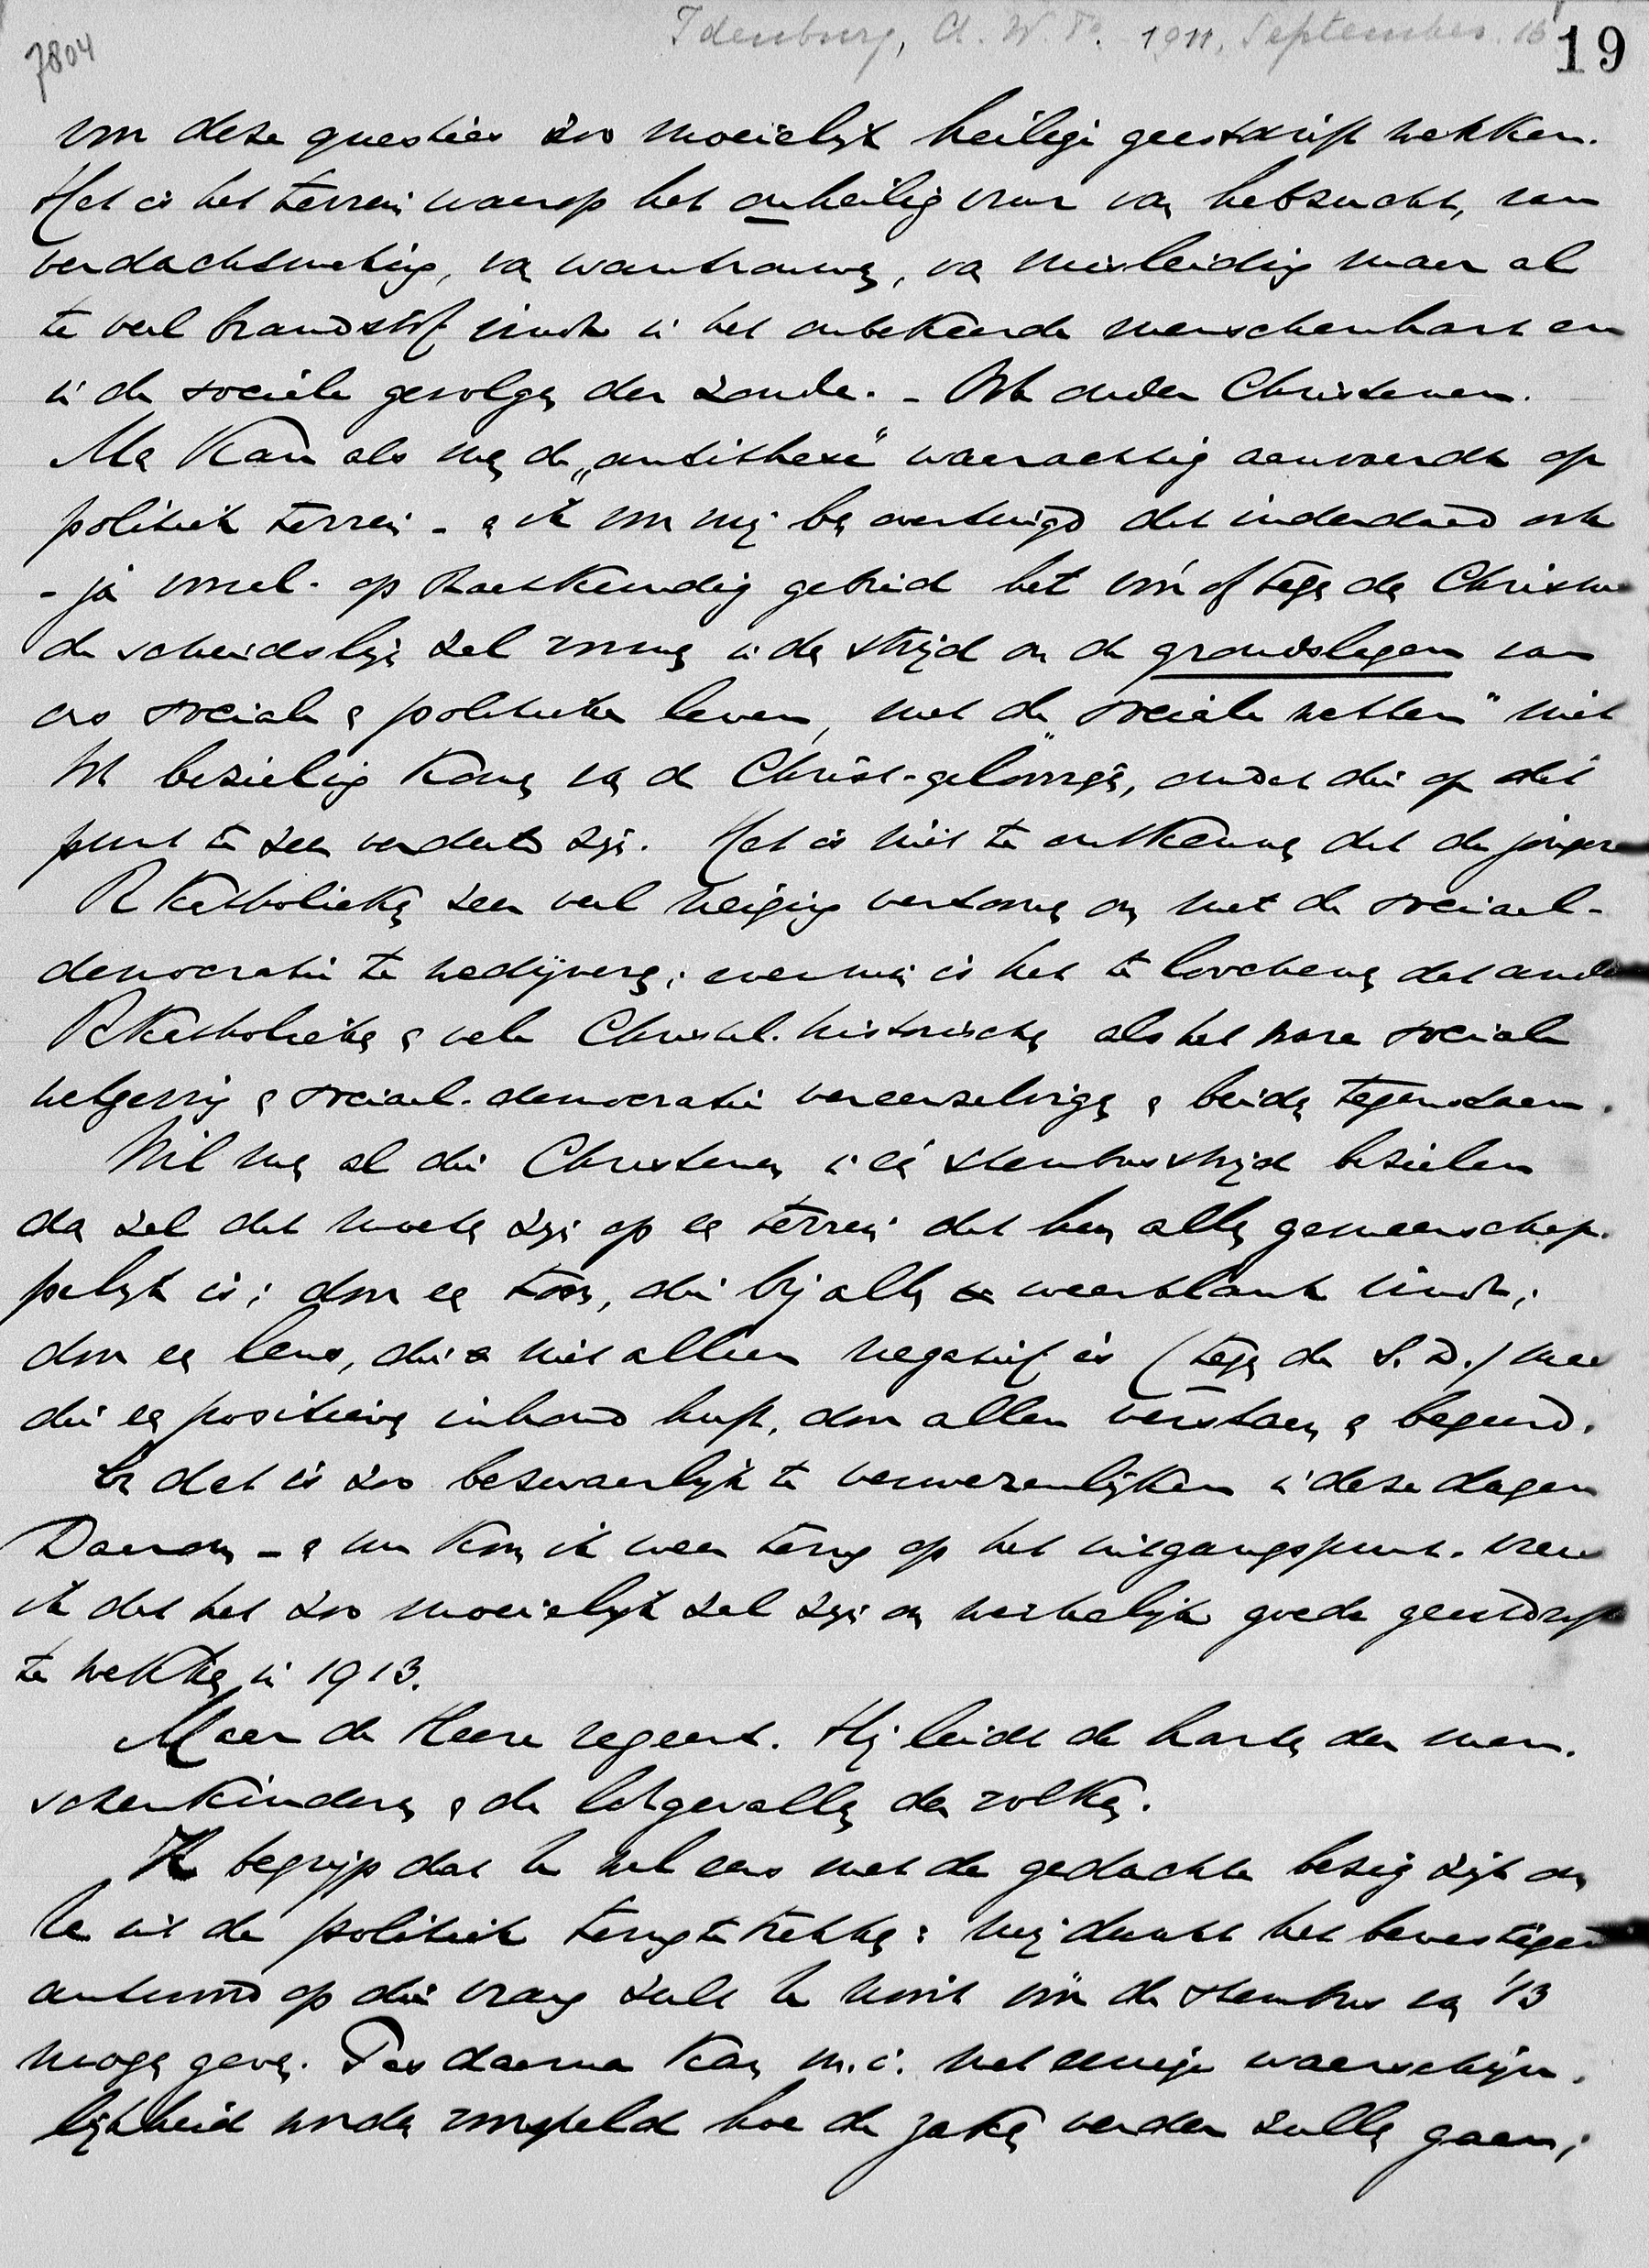 Idenburg, A.W.F. 1911, September 16
19
7804
voor deze questies zoo moeielijk heilige geestdrift wekken.
Het is het terrein waarop het onheilig vuur van hebzucht, van
verdachtmaking, van wantrouwen, van misleiding maar al
te veel brandstof vindt in het onbekeerde menschenhart en
in de sociale gevolgen der zonde. - Ook onder Christenen.
Men kan als men de „antithese" waarachtig aanvaardt op
politiek terrein - en ik voor mij ben overtuigd dat inderdaad ook
- ja vooral - op staatkundig gebied het vóór of tegen den Christus
de scheidslijn zal vormen in den strijd om de grondslagen van
ons sociale en politieke leven, met de „sociale wetten" niet
tot bezieling komen van de Christ-geloovigen, omdat die op dit
punt te zeer verdeeld zijn. Het is niet te ontkennen dat de jongere
R Katholieken zeer veel neiging vertoonen om met de sociaal-
democratie te wedijveren; evenmin is het te loochenen dat andere
R Katholieken en vele Christel. historischen als het ware sociale
wetgeving en sociaal-democratie vereenzelvigen en beiden tegenstaan.
Wil men al die Christenen in één stembusstrijd bezielen
dan zal dat moeten zijn op een terrein dat hen allen gemeenschap-
pelijk is; door een toon, die bij allen weerklank vindt;
door een leus, die niet alleen negatief is (tegen de S.D.) maar
die een positieven inhoud heeft, door allen verstaan en begeerd.
En dat is zoo bezwaarlijk te verwezenlijken in deze dagen
Daarom - en nu kom ik weer terug op het uitgangspunt - vrees
ik dat het zoo moeielijk zal zijn om werkelijk goede geestdrift
te wekken in 1913.
Maar de Heere regeert. Hij leidt de harten der men-
schenkinderen en de lotgevallen der volken.
Ik begrijp dat U wel eens met de gedachte bezig zijt om
U uit de politiek terug te trekken; mij dunkt het bevestigend
antwoord op die vraag zult U nooit vóór de stembus van '13
mogen geven. Pas daarna kan m.i. met eenige waarschijn-
lijkheid worden voorspeld hoe de zaken verder zullen gaan;